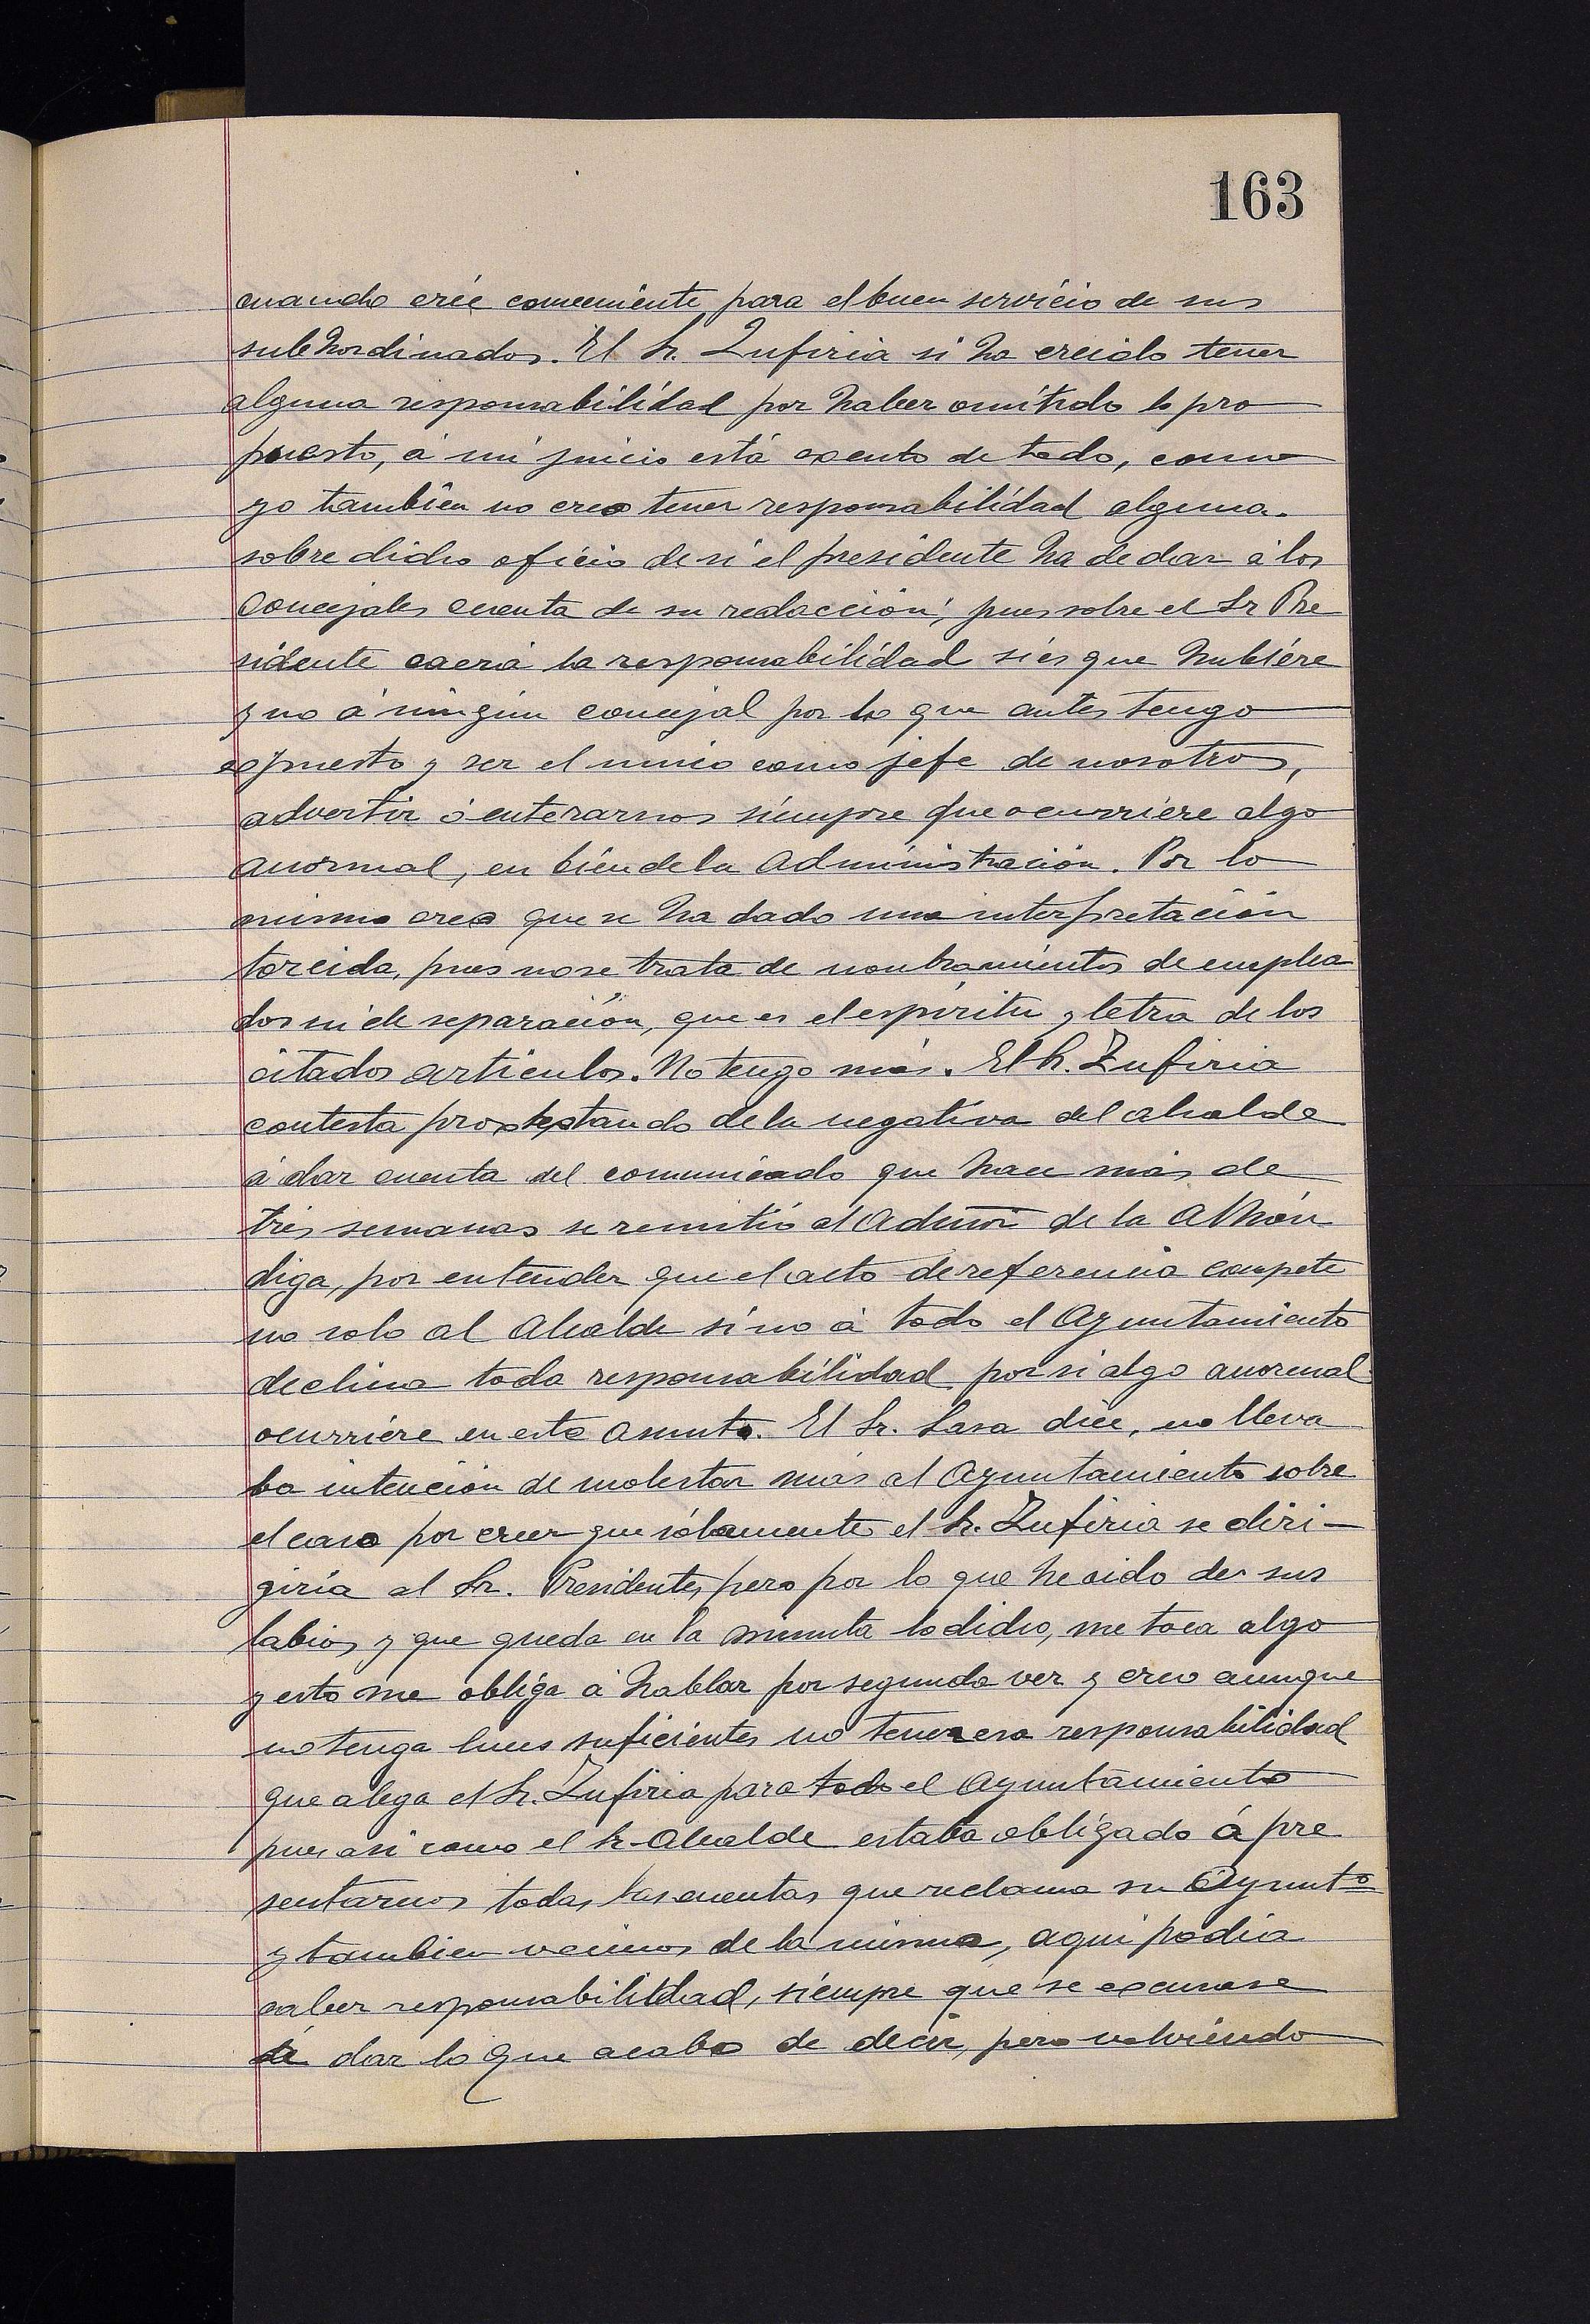 163
cuando crée conveeniente para el buen servicio de sus
subhordinados. El Sr. Zufiria si ha creido tener
alguna responsabilidad por haber omitido lo pro
puesto, á mi juicio está exento de todo, como
yo tambien no creo tener responsabilidad alguna.
sobre dicho oficio de si el presidente ha de dar á los
Concejales cuenta de su redacción, pues sobre el Sr Pre
sidente caerá la responsabilidad si es que hubiére
y no á ningún concejal por lo que antes tengo
expuesto y ser el unico como jefe de nosotros,
advertir ó enterarnos siempre que ocurriere algo
anormal, en bien de la Administración. Por lo
mismo creo que se ha dado una interpretación
torcida, pues no se trata de nombramientos de emplea
dos ni de separación, que es el espíritu y letra de los
citados articulos. No tengo más. El Sr. Zufiria
contesta protestando de la negativa del alcalde
á dar cuenta del comunicado que hace más de
tres semanas se remitió al Admor de la Alhón
diga, por entender que el acto de referencia compete
no solo al Alcalde sino á todo el Ayuntamiento
declina toda responsabilidad por si algo anormal
ocurriére en este asunto. El Sr. Sasa dice, no lleva
ba intención de molestar más al Ayuntamiento sobre
el caso por creer que sólamente el Sr. Zufiria se diri-
giria al Sr. Presidente, pero por lo que he oido de sus
labios y que queda en la minuta lo dicho, me toca algo
y esto me obliga á hablar por segunda vez y creo aunque
no tenga luces suficientes no tener esa responsabilidad
que alega el Sr. Zufiria para todo el Ayuntamiento
pues asi como el Sr. Alcalde estaba obligado á pre
sentarnos todas las cuentas que reclama su Ayuntº
y tambien vecinos de la misma, aqui podia
caber responsabilidad, siempre que se excusase
de dar lo que acabo de decir, pero volviendo